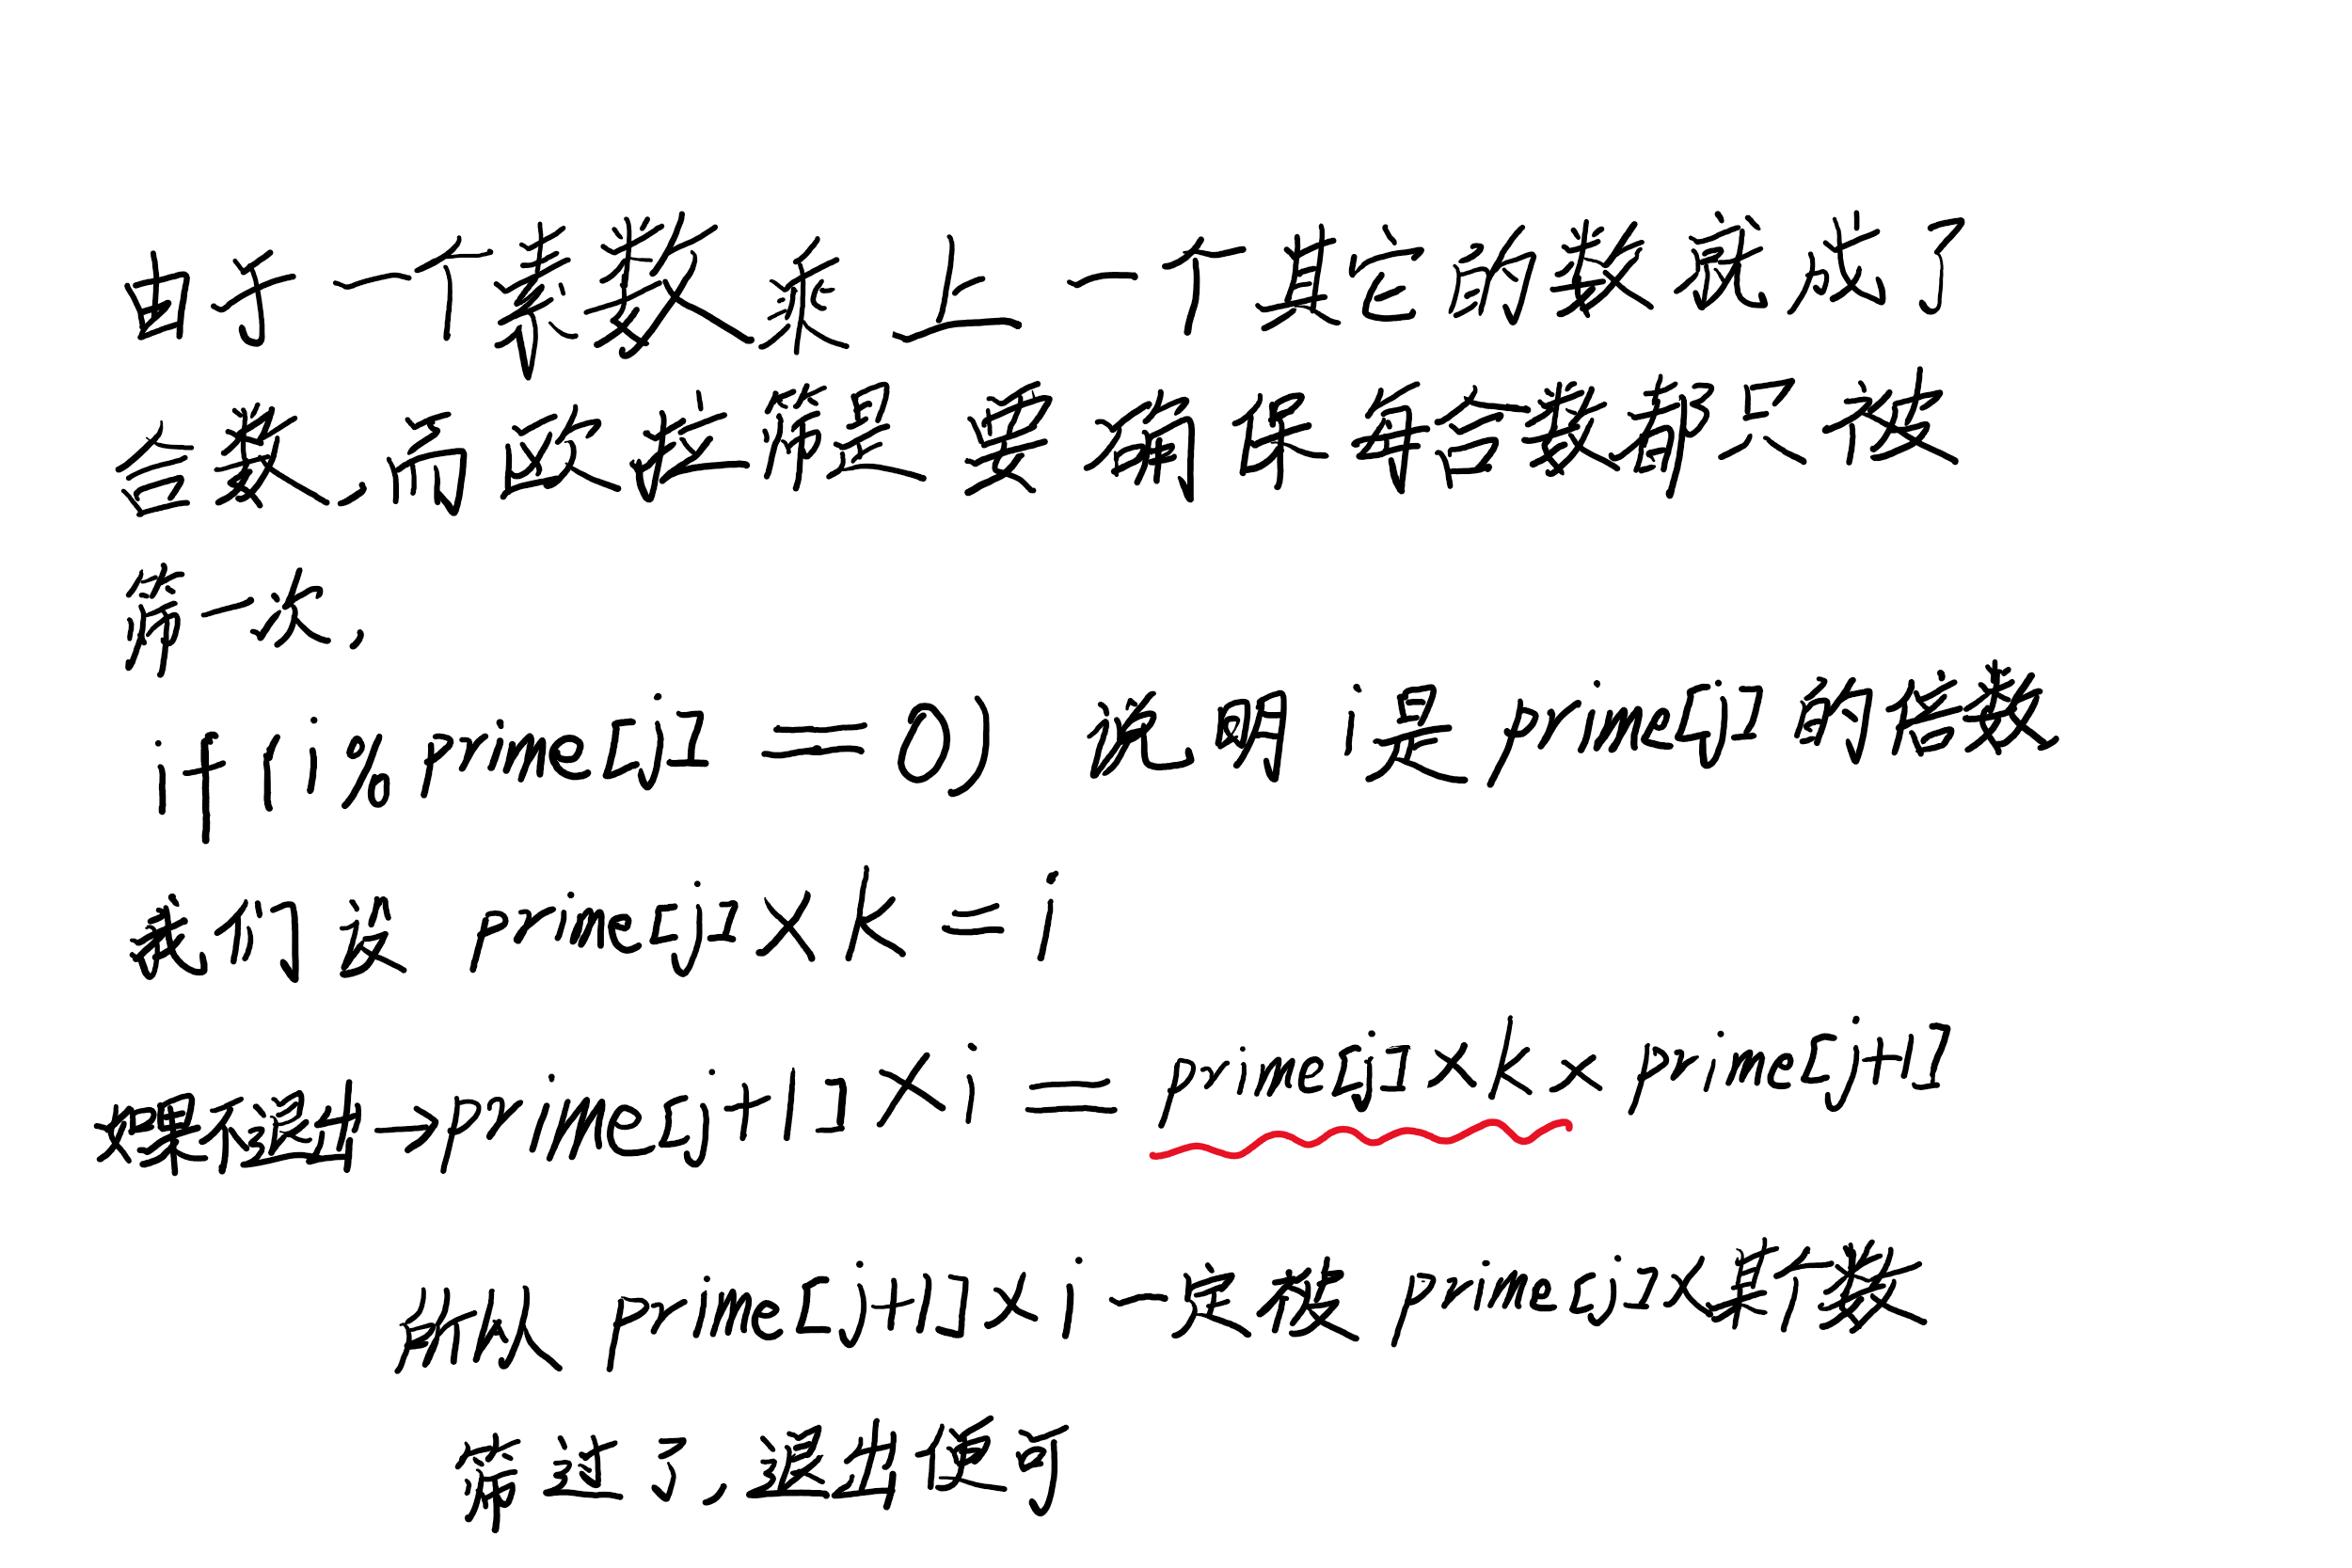 由于一个素数乘上一个其它的数就成了
合数,而欧拉筛是要确保每合数都只被
筛一次,
if(i%prime[j]==0) 说明i是prime[j]的倍数
我们设 prime[j]×k=i
如果不退出→prime[j+1]×i=prime[j]×k×prime[j+1]
所以 prime[j+1]×i一定被prime[j]×某个数
筛过了,退出便可